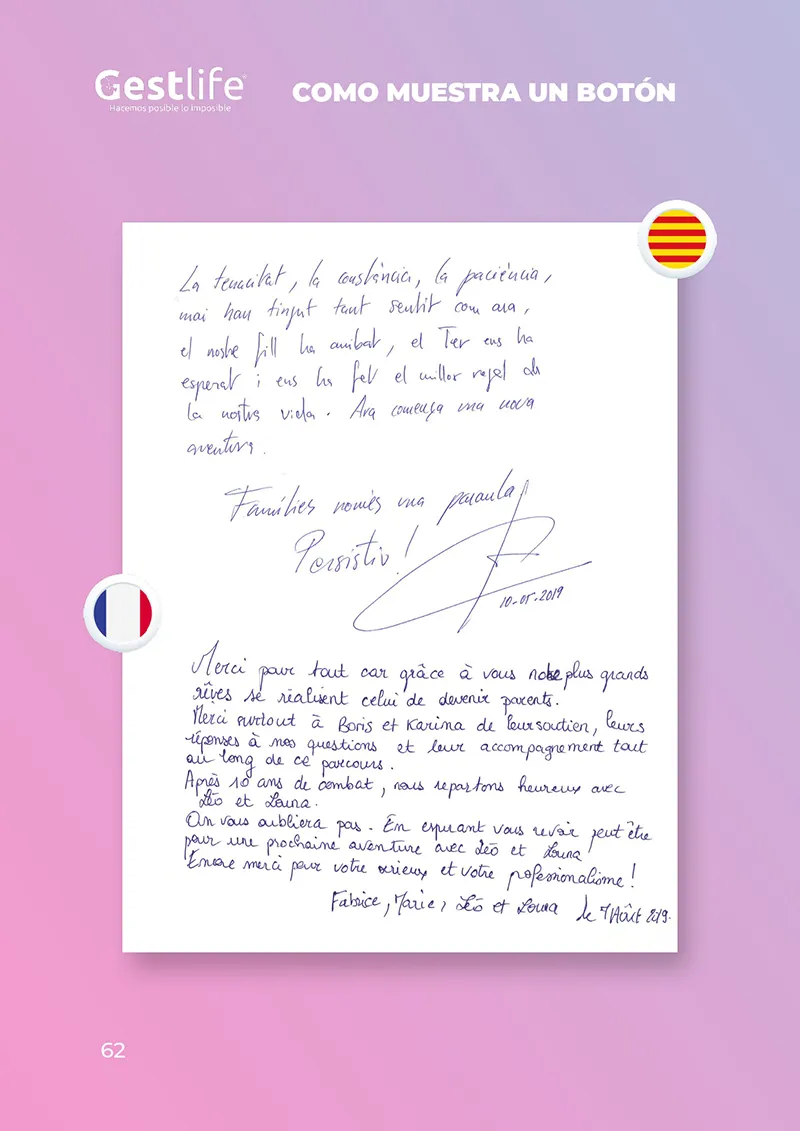 Gestlife
Hacemos posible lo imposible
COMO MUESTRA UN BOTÓN
La tenacitat, la constància, la paciència,
mai han tingut tant sentit com ara,
el nostre fill ha arribat, el Ter ens ha
esperat i ens ha fet el millor regal de
la nostra vida. Ara comença una nova
aventura.
Famílies només una paraula,
Persistiu!
10-05-2019
Merci pour tout car grâce à vous notre plus grands
rêves se réalisent celui de devenir parents.
Merci surtout à Boris et Karina de leur soutien, leurs
réponses à nos questions et leur accompagnement tout
au long de ce parcours.
Après 10 ans de combat, nous repartons heureux avec
Léo et Louna.
On vous oubliera pas. En espérant vous revoir peut être
pour une prochaine aventure avec Léo et Louna
Encore merci pour votre sérieux et votre professionalisme!
Fabrice, Marie, Léo et Louna le 7 Août 2019.
62